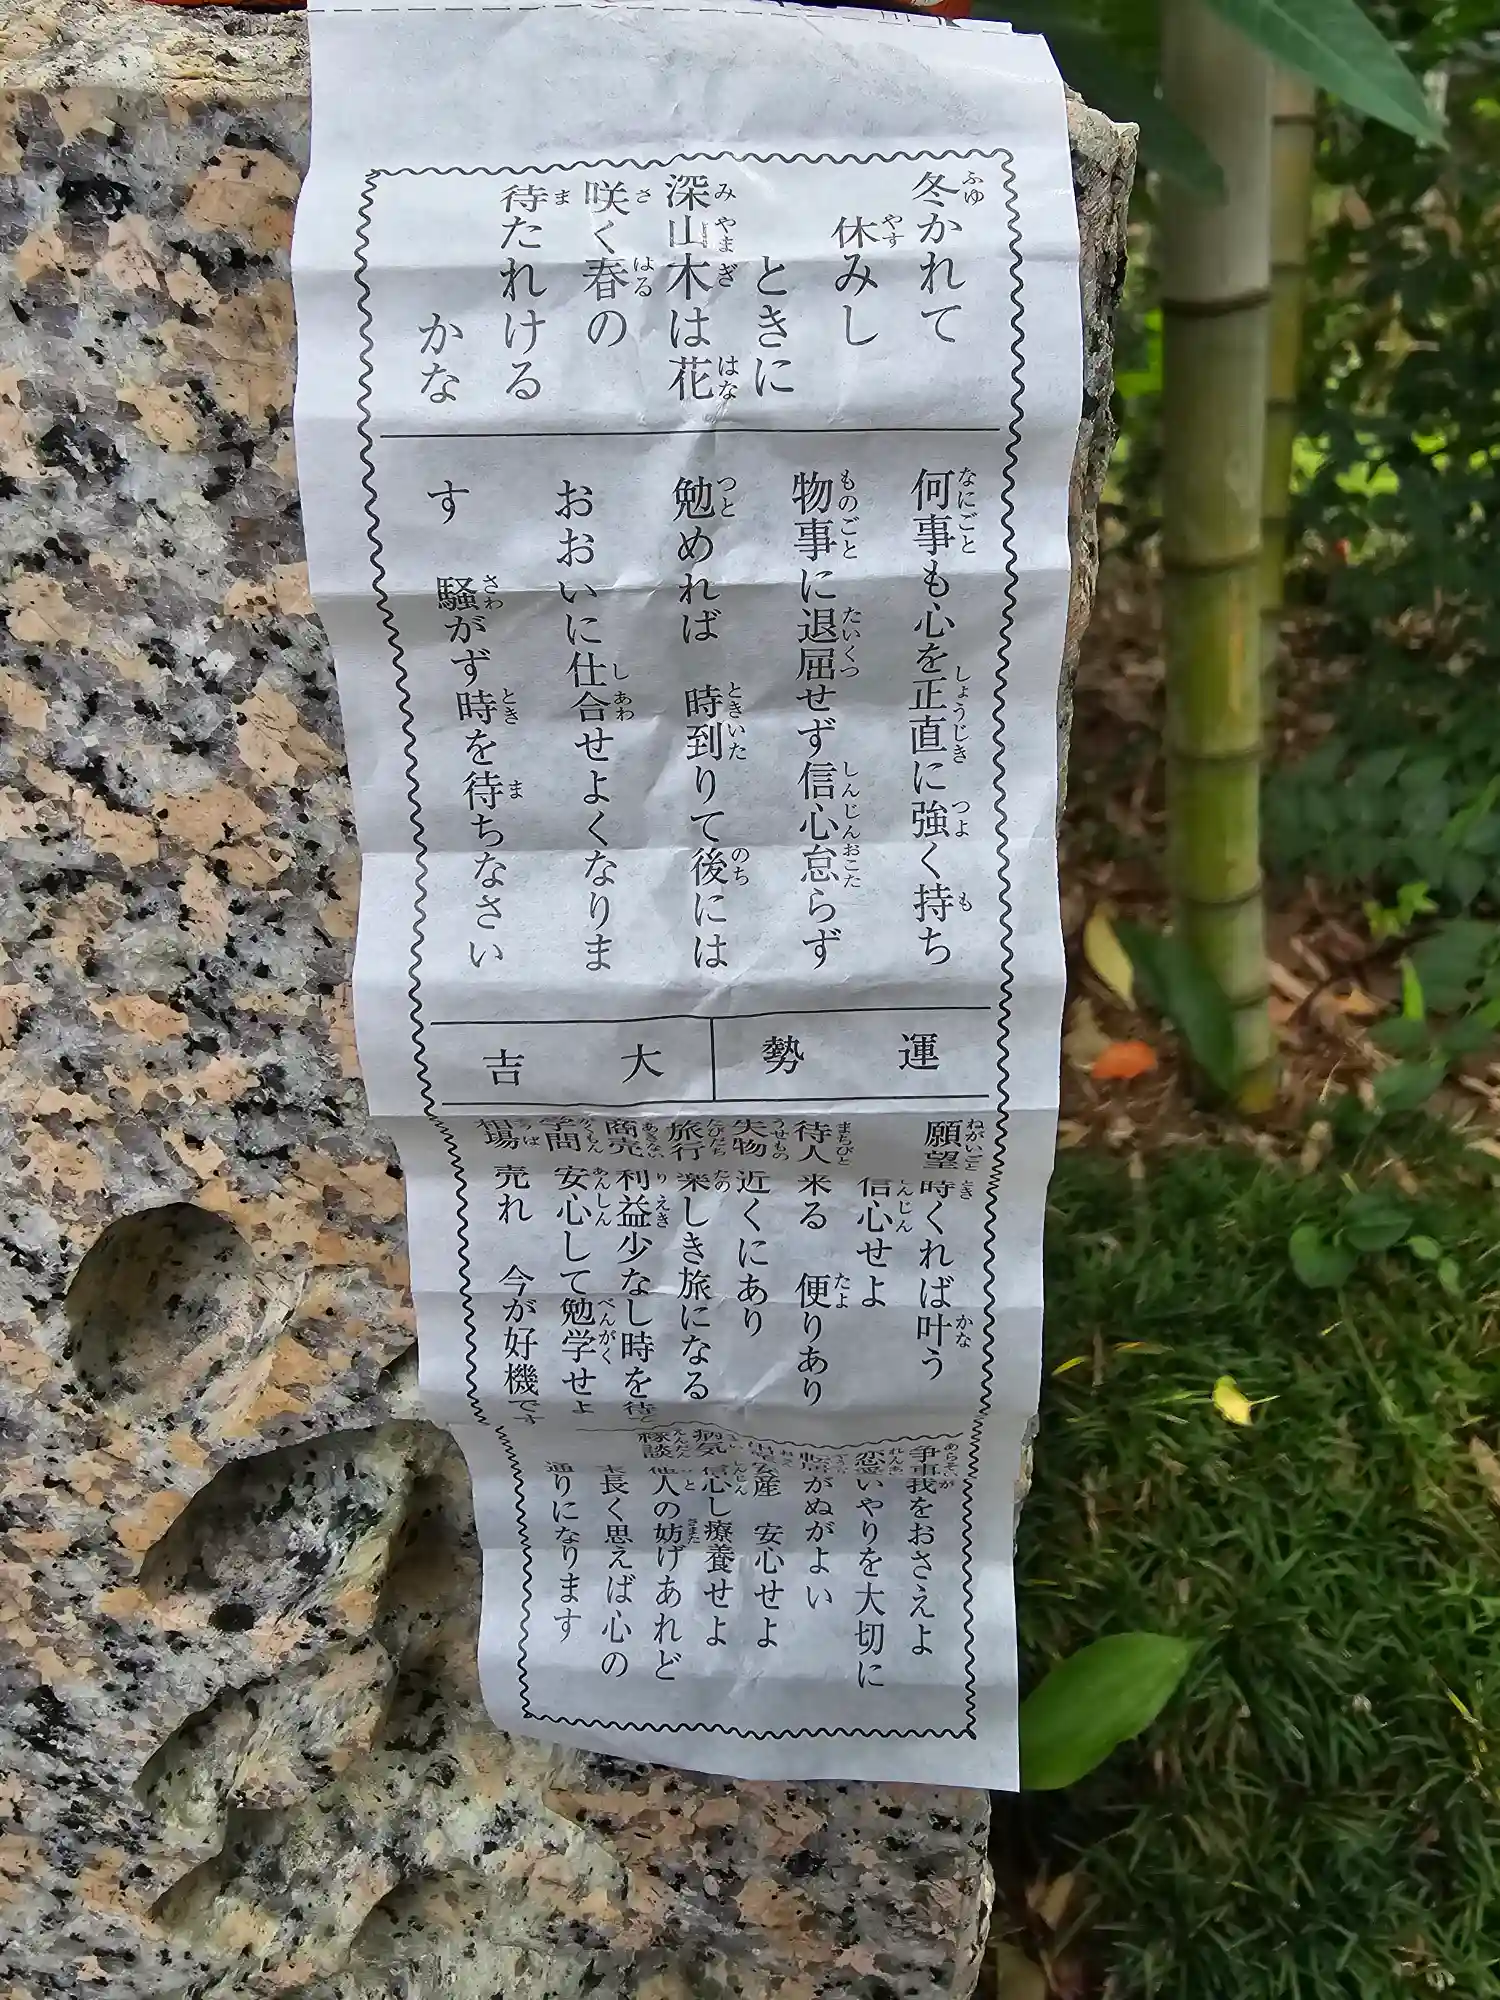 冬かれて
休みし
ときに
深山木は花
咲く春の
待たれける
かな
何事も心を正直に強く持ち
物事に退屈せず信心怠らず
勉めれば 時到りて後には
おおいに仕合せよくなりま
す 騒がず時を待ちなさい
運勢 大吉
願望 時くれば叶う
信心せよ
待人 来る 便りあり
失物 近くにあり
旅行 楽しき旅になる
商売 利益少なし時を待て
学問 安心して勉学せよ
相場 売れ 今が好機です
争事 我をおさえよ
恋愛 いやりを大切に
がぬがよい
安産 安心せよ
病気 信心し療養せよ
縁談 他人の妨げあれど
長く思えば心の
通りになります